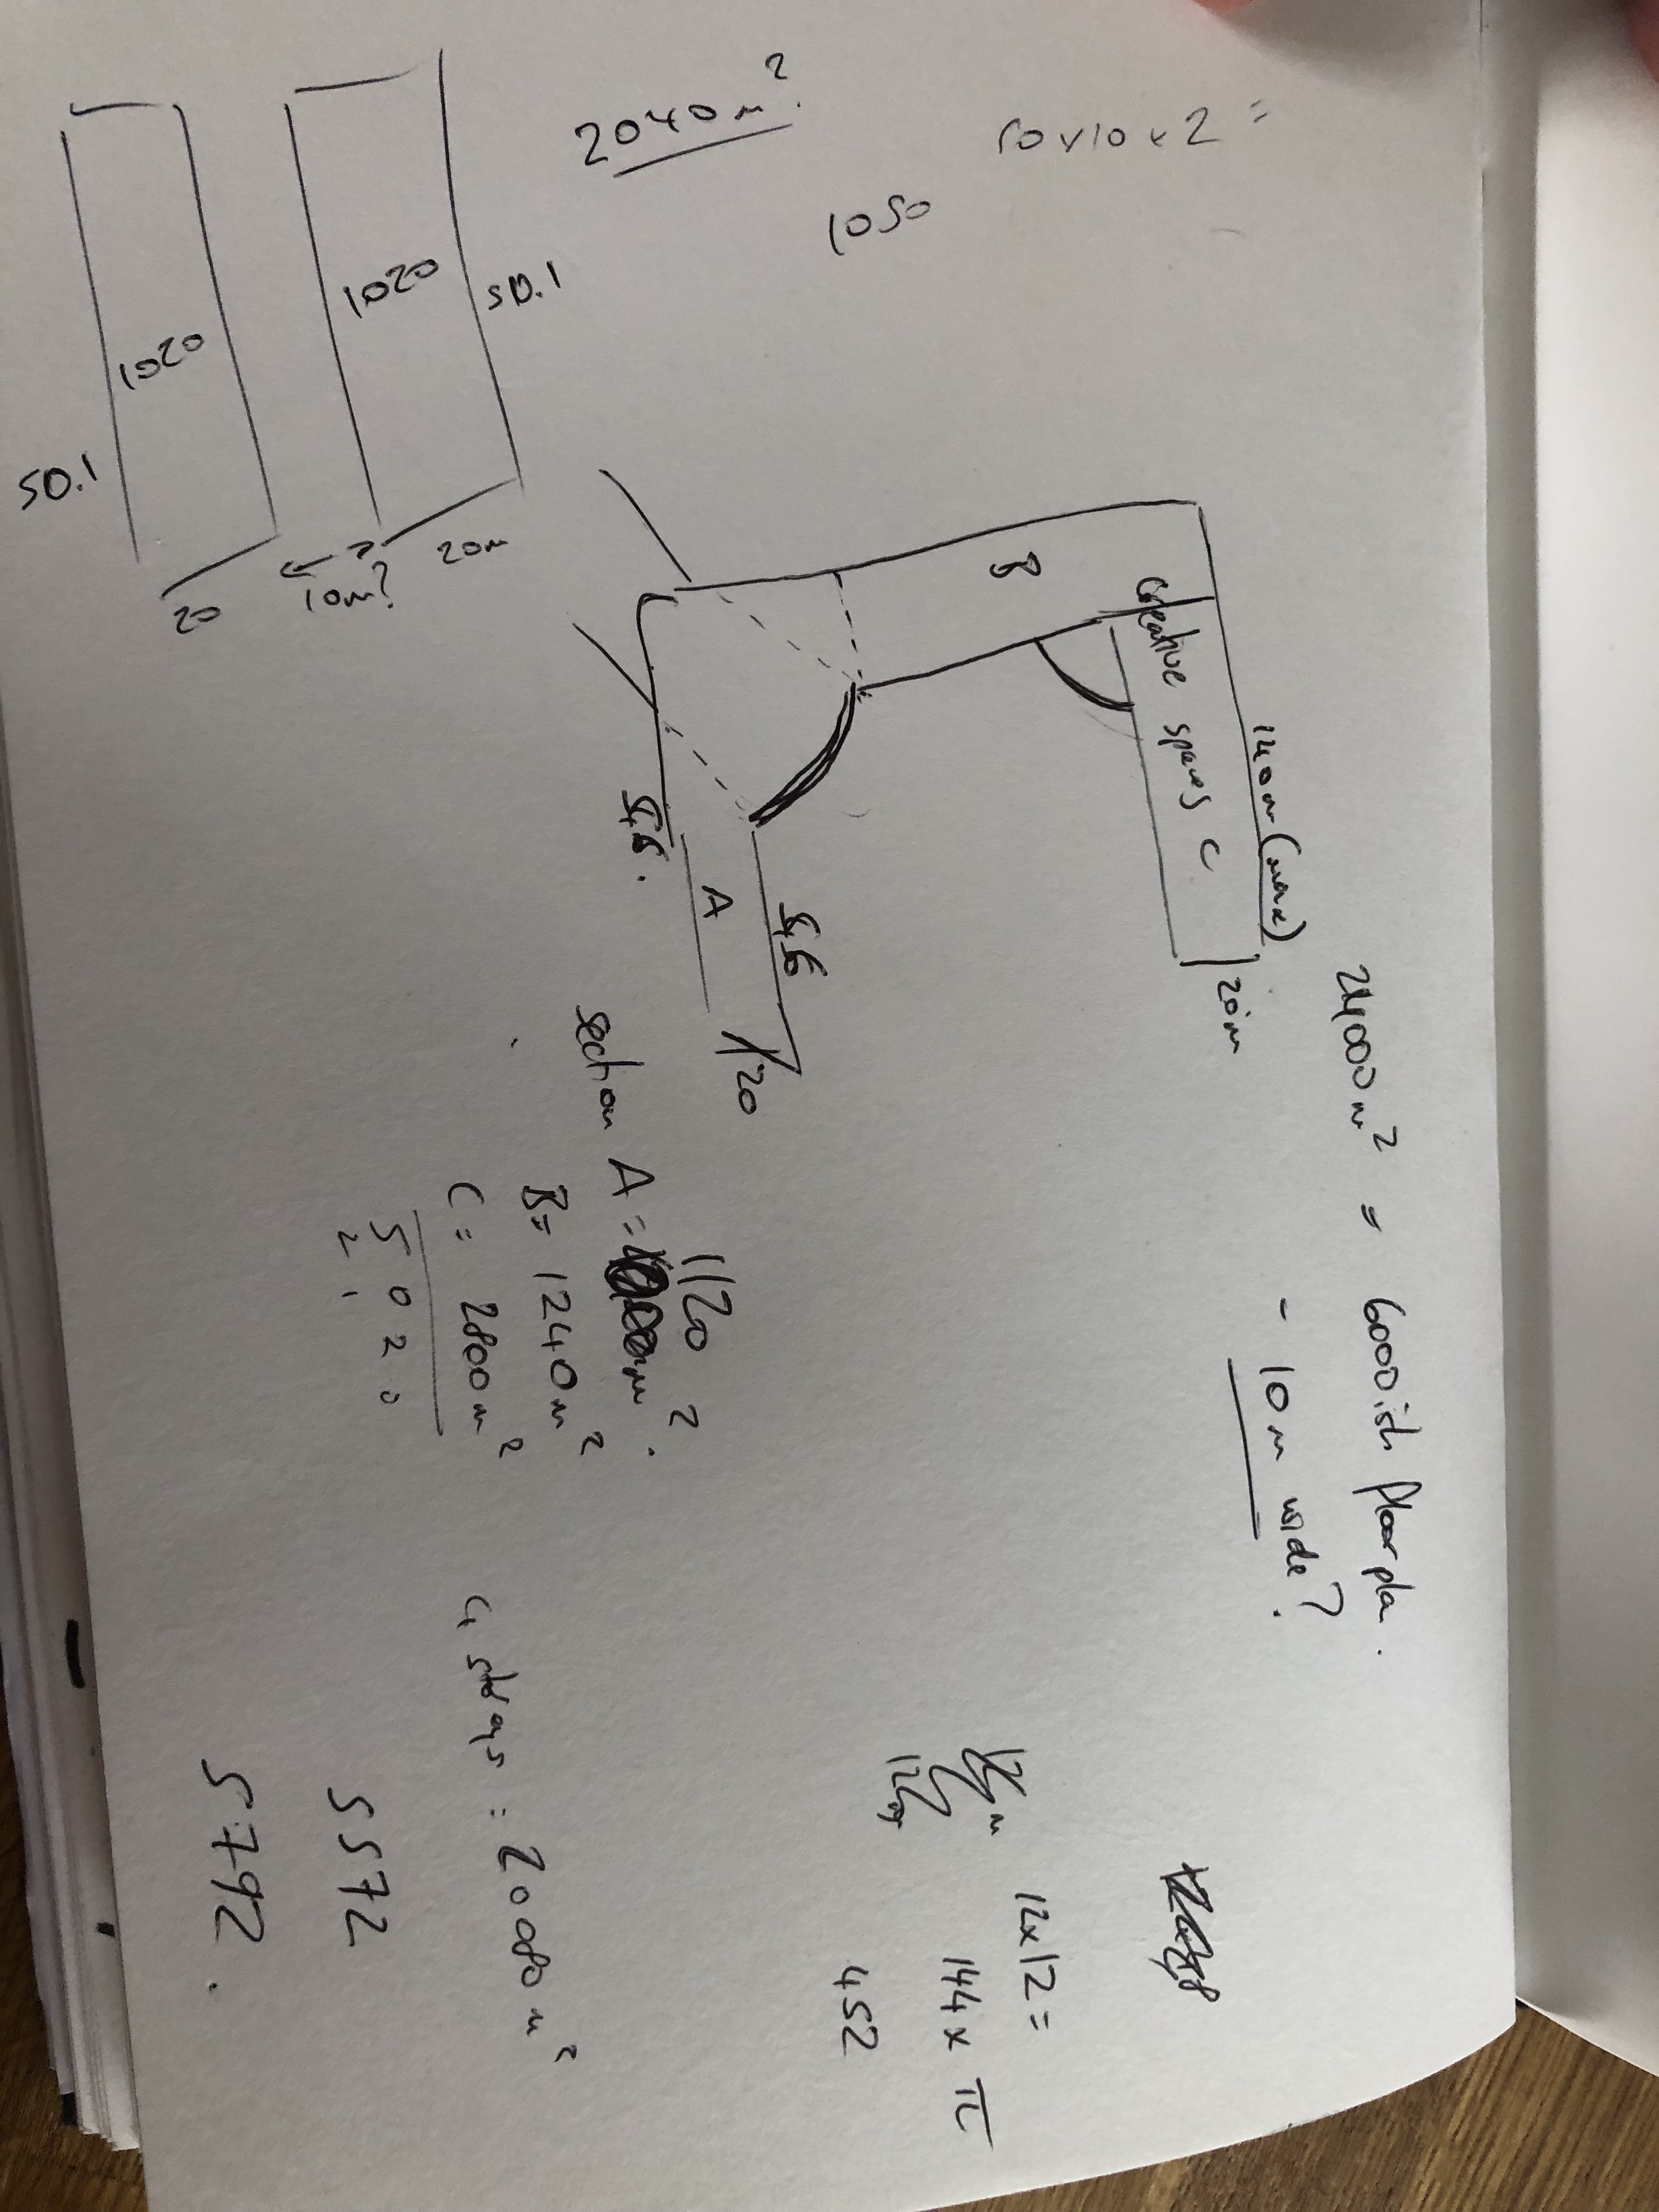 24000m² = 6000ish floorpla.
- 10m wide?
140m (max)
20m
creative spaces C
B
56
A
56.
/20
1120
section A = m².
B = 1240m²
C = 2800m²
5020
2.
12m
12m
12x12 =
144 x π
452
4 stays = 2080m²
5572
5792.
50x10x2 =
1050
2040m²
50.1
1020
1020
50.1
20m
10m?
20